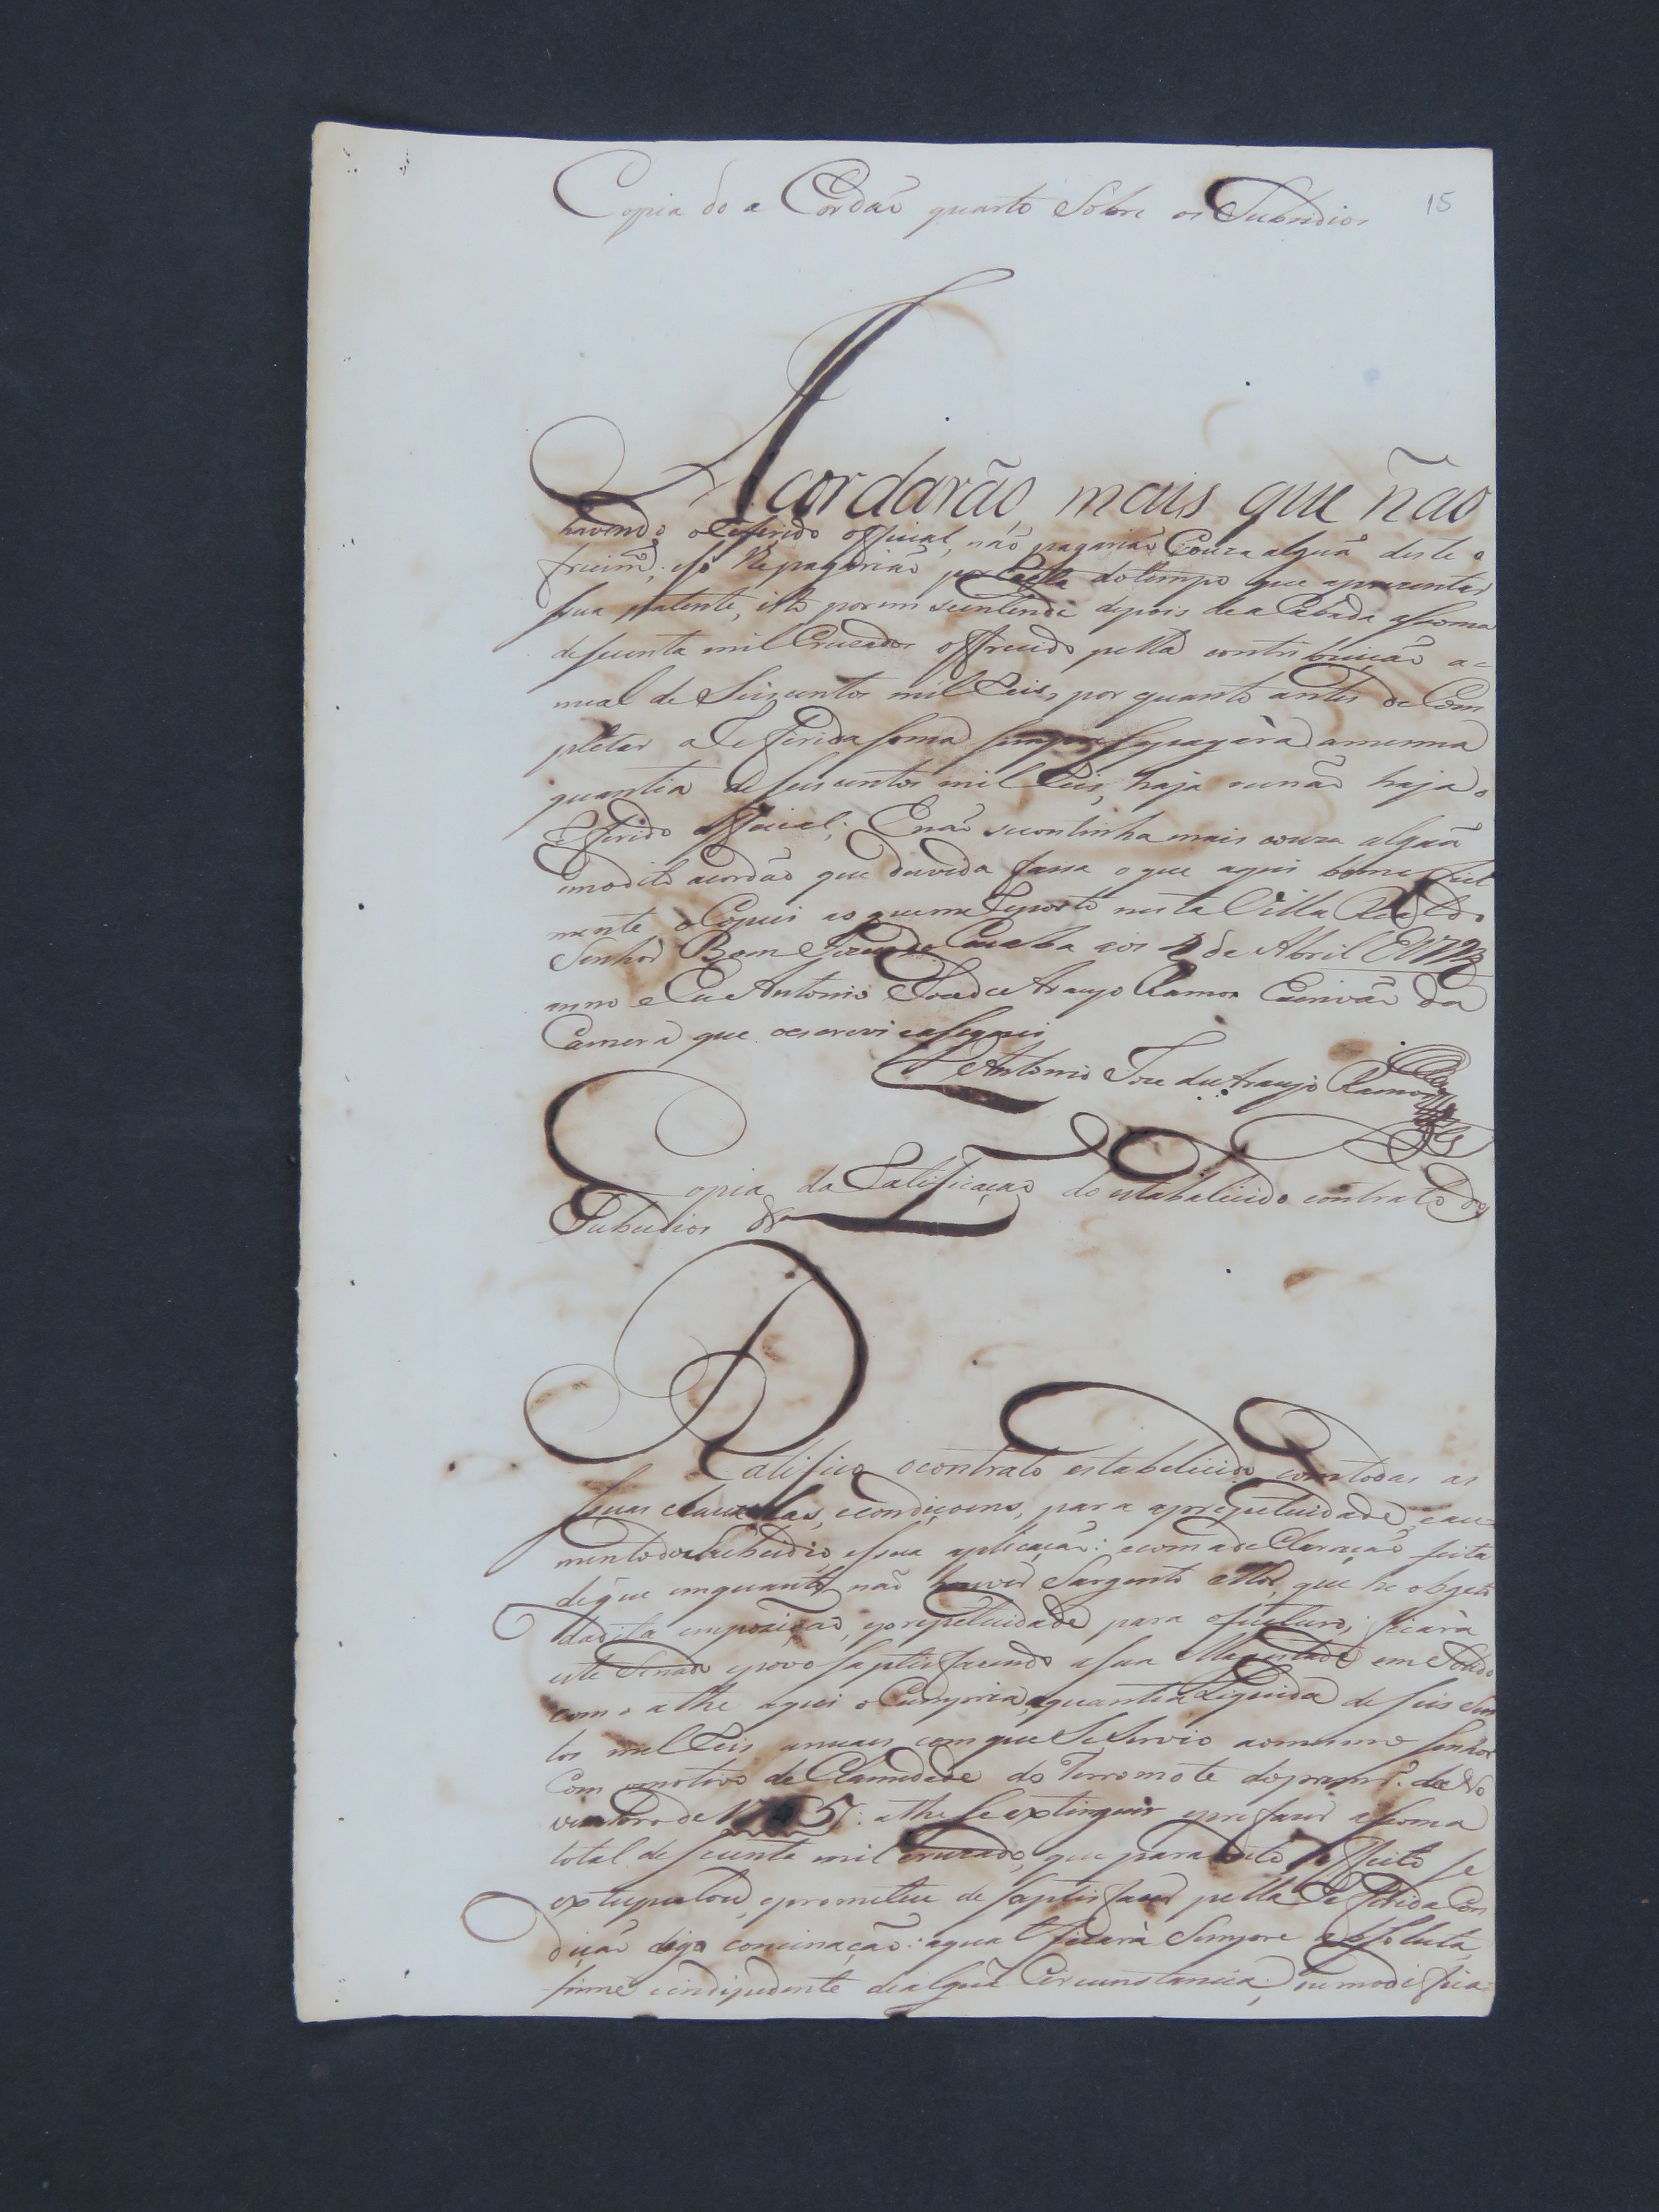 Copia do a Cordaõ quarto Sobre os Subsidios
15
Acordaraõ mais que naõ
havendo o Referido official, naõ pagariaõ Couza alguã deste o
so Repagariaõ por Ratta do tempo que aprezentar
sua patente, isto porem seentende depois de a Cabada asoma
desecenta mil Cruzados offrecido pella contribuiçaõ a=
nual de Seizcentos mil Reis, por quanto antes de Com
pletar a Referida soma sempre sepagarà amesma
quantia de seis centos mil Reis, haja ounaõ haja o
Rferido official; Enaõ secontinha mais couza alguã
emodito acordaõ que duvida fassa o que aqui bem efiel
mente o Copiei ao queme Reporto nesta Villa Real do
Senhor Bom Jezus do Cuiaba aos 4 de Abril
anno e Eu Antonio Joze de Araujo Ramos Escrivaõ da
Camera que oescrevi easigney
Antonio Joze de Araujo Ramos
Copia da Ratificaçaõ do estabalecido contrato dos
Subcidios &ª
Ratifico ocontrato estabelicido com todas as
suas clauzulas, econdiçoens, para aprepetuidade, eau=
mento do Subcidio, esua aplicaçaõ: ecom adeClaraçaõ feita
deque emquanto naõ houver Sargento Mor, que he obgeto
dadita empoziçaõ, eprepetuidade para ofucturo; ficarà
este Senado epovo saptisfazendo asua Magestade em Solido
como athe aqui o Cumpria, aquantia Liquida de seis Sen
tos mil Reis anuaes com que Se Servio aomesmo Senhor
Com omotivo de Clamidade do Terromote doprimrº. de No
vembro de 1755: athe se extinguir eprefazer asoma
total de secenta mil cruzados, que para odito effeito se
extupulou, eprometeu de saptisfazer pella Refferida Con
diçaõ digo concinaçaõ: aqual ficarà Sempre absoluta,
firme eindipendente dealguã Circunstancia; ou modifica=